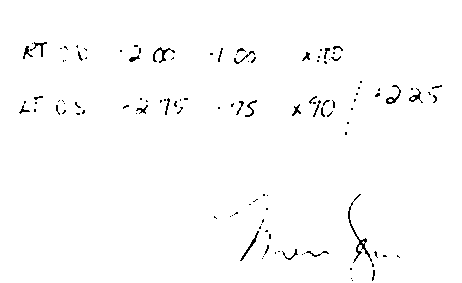 RT OD -2.00 -1.00 x 110
LT OS -2.75 -.75 x 90 / +2.25